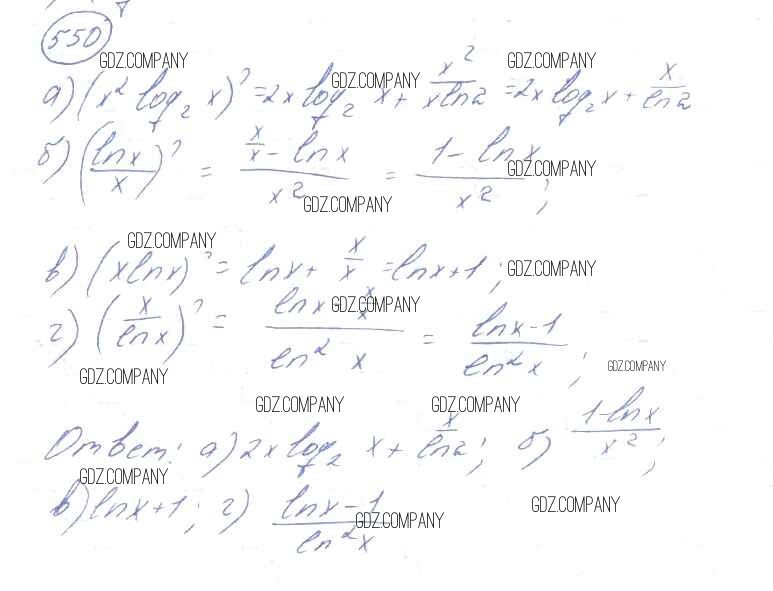 550
GDZ.COMPANY GDZ.COMPANY GDZ.COMPANY
а) (x² log₂ x)' = 2x log₂ x + x²/(x ln 2) = 2x log₂ x + x/ln 2
б) (ln x/x)' = (x/x - ln x)/x² = (1 - ln x)/x²;
GDZ.COMPANY GDZ.COMPANY
GDZ.COMPANY
в) (x ln x)' = ln x + x/x = ln x + 1; GDZ.COMPANY
г) (x/ln x)' = (ln x - x/x)/ln² x = (ln x - 1)/ln² x;
GDZ.COMPANY
GDZ.COMPANY GDZ.COMPANY
GDZ.COMPANY GDZ.COMPANY
Ответ: а) 2x log₂ x + x/ln 2; б) (1 - ln x)/x²;
GDZ.COMPANY
в) ln x + 1; г) (ln x - 1)/ln² x
GDZ.COMPANY GDZ.COMPANY